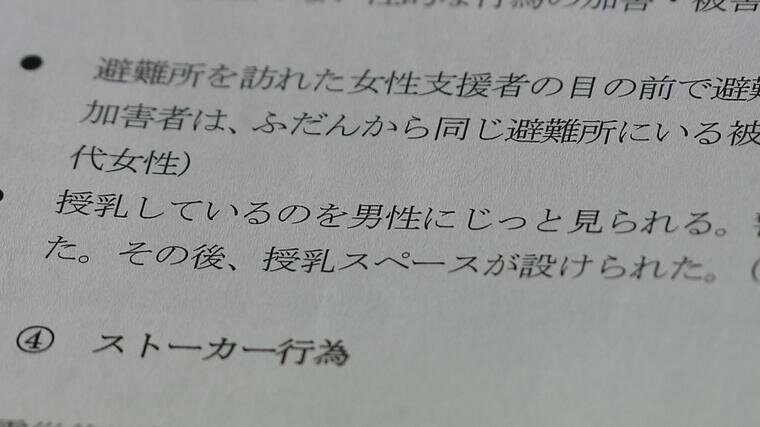 性的な行為の加害・被害
● 避難所を訪れた女性支援者の目の前で避難
加害者は、ふだんから同じ避難所にいる被
代女性）
授乳しているのを男性にじっと見られる。
た。その後、授乳スペースが設けられた。（
④ ストーカー行為